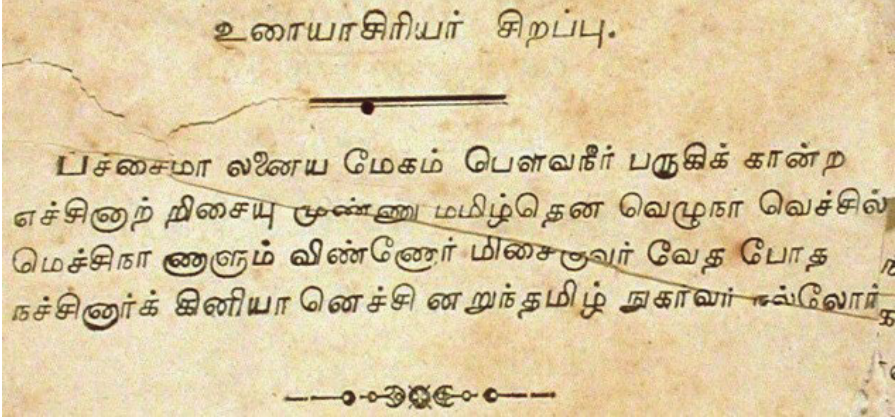 உரையாசிரியர் சிறப்பு.
பச்சைமா லனைய மேகம் பௌவநீர் பருகிக் கான்ற
எச்சினாற் றிசையு முண்ணு மமிழ்தென வெழுநா வெச்சில்
மெச்சிநா ணாளும் விண்ணோர் மிசைகுவர் வேத போத
நச்சினார்க் கினியா னெச்சி னறுந்தமிழ் நுகர்வர் நல்லோர்